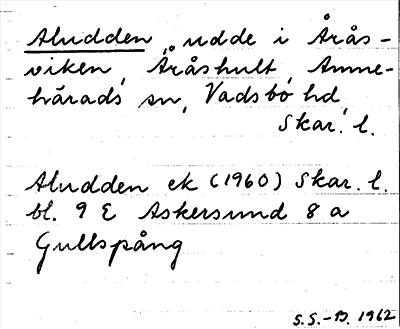 Aludden, udde i Årås-
viken, Åråshult, Amne-
härads sn, Vadsbo hd,
Skar. l.
Aludden ek (1960) Skar. l.
bl. 9 E Askersund 8 a
Gullspång
S.S.-B. 1962